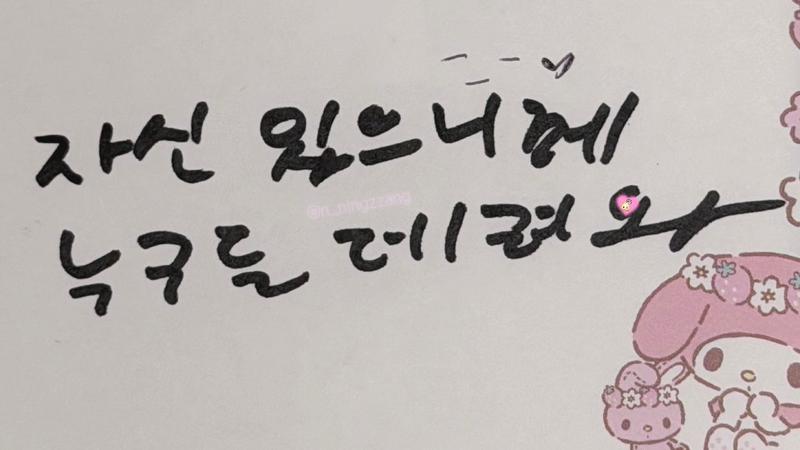 자신 있으니 헤
누구든 데려와
@n_ningzzang